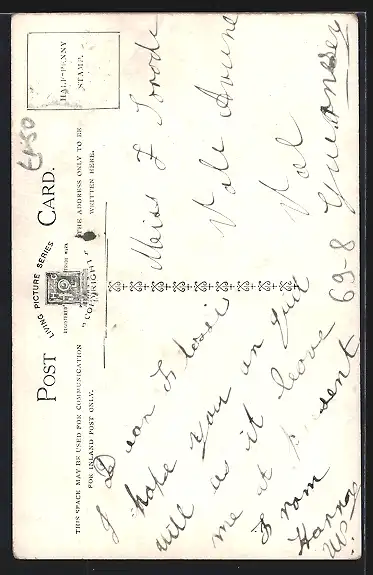 POST CARD.
LIVING PICTURE SERIES
COPYRIGHT
THIS SPACE MAY BE USED FOR COMMUNICATION
FOR INLAND POST ONLY.
THE ADDRESS ONLY TO BE
WRITTEN HERE.
HALF-PENNY
STAMP.
£1-50
Dear Flossie
I hope you an Lill
will as it leave
me at present
From
Hanna
Miss F Torode
Vale Avune
Val
Guernsey
69-8